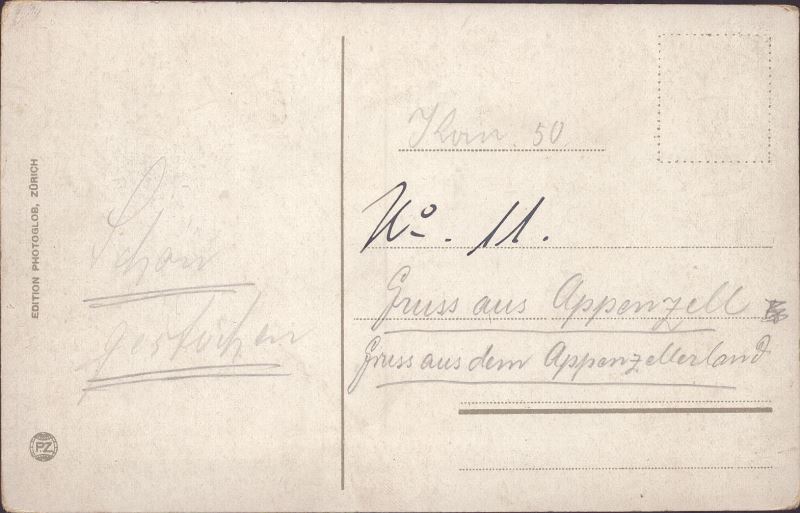 EDITION PHOTOGLOB, ZÜRICH
Schön
gestochen
PZ
50
No. 11.
Gruss aus Appenzell
Gruss aus dem Appenzellerland